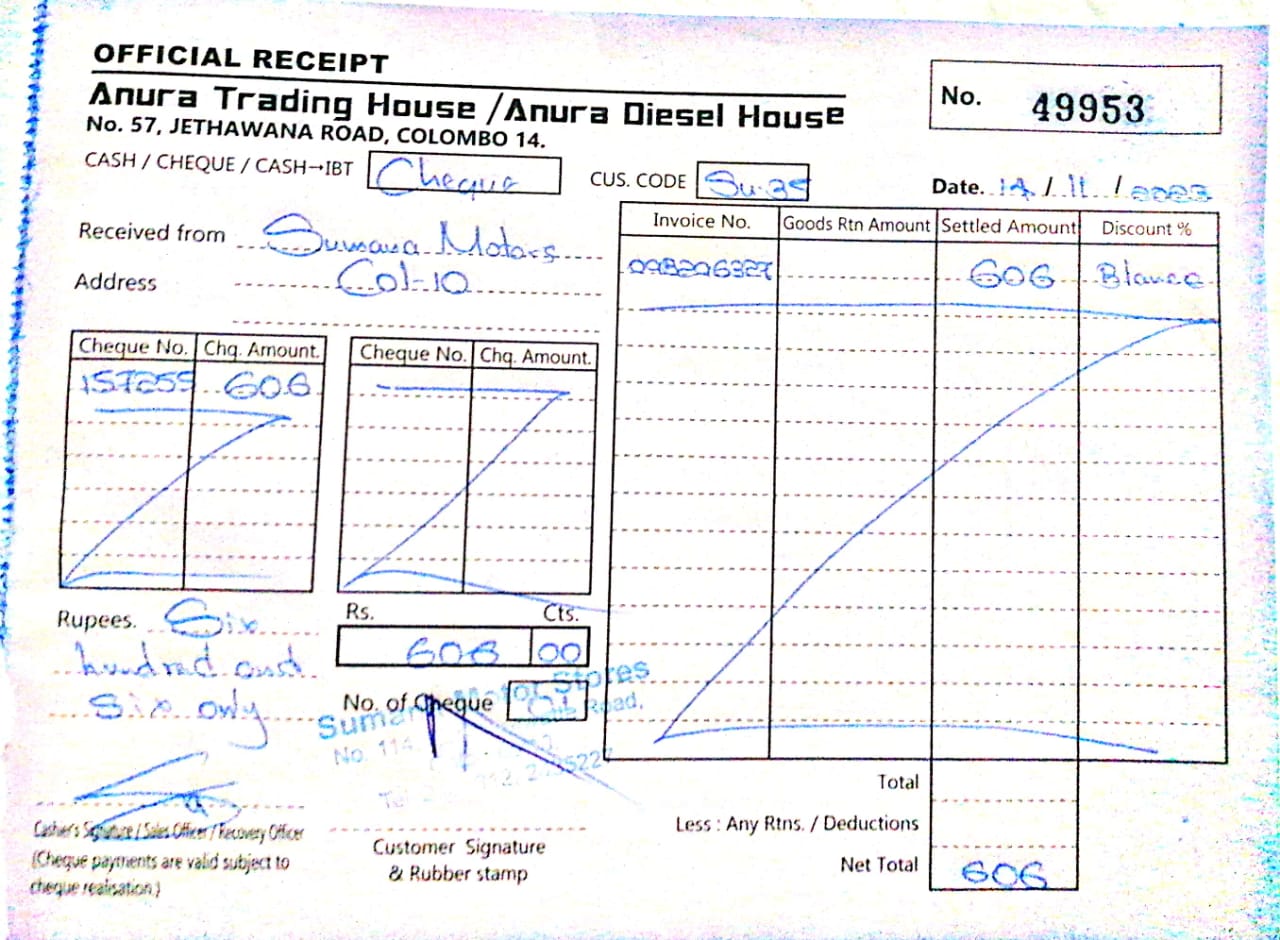 OFFICIAL RECEIPT
Anura Trading House / Anura Diesel House
No. 57, JETHAWANA ROAD, COLOMBO 14.
No. 49953
CASH / CHEQUE / CASH→IBT Cheque
CUS. CODE Su-35
Date. 14 / 11 / 2023
Received from Sumana Motors
Address Col-10
Invoice No. Goods Rtn Amount Settled Amount Discount %
606 Blance
Cheque No. Chq. Amount. Cheque No. Chq. Amount.
157255 606
Rupees. Six
hundred and
Six only
Rs. Cts.
606 00
No. of Cheque 01
Motor Stores
Road,
No. 114
Tel
Cashier's Signature / Sales Officer / Recovery Officer
(Cheque payments are valid subject to
cheque realisation)
Customer Signature
& Rubber stamp
Total
Less : Any Rtns. / Deductions
Net Total 606